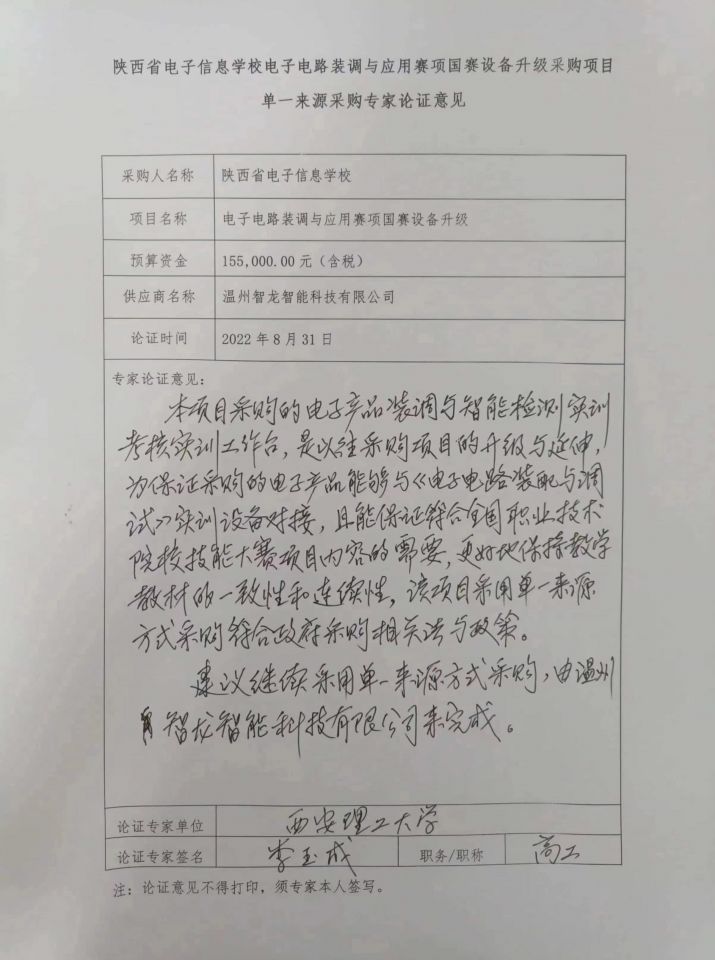 陕西省电子信息学校电子电路装调与应用赛项国赛设备升级采购项目
单一来源采购专家论证意见
采购人名称 陕西省电子信息学校
项目名称 电子电路装调与应用赛项国赛设备升级
预算资金 155,000.00 元（含税）
供应商名称 温州智龙智能科技有限公司
论证时间 2022 年 8 月 31 日
专家论证意见：
本项目采购的电子产品装调与智能检测实训
考核实训工作台，是以往采购项目的升级与延伸，
为保证采购的电子产品能够与《电子电路装配与调
试》实训设备对接，且能保证符合全国职业技术
院校技能大赛项目内容的需要，更好地保持教学
教材的一致性和连续性，该项目采用单一来源
方式采购符合政府采购相关法与政策。
建议继续采用单一来源方式采购，由温州
智龙智能科技有限公司来完成。
论证专家单位 西安理工大学
论证专家签名 李玉成 职务/职称 高工
注：论证意见不得打印，须专家本人签写。